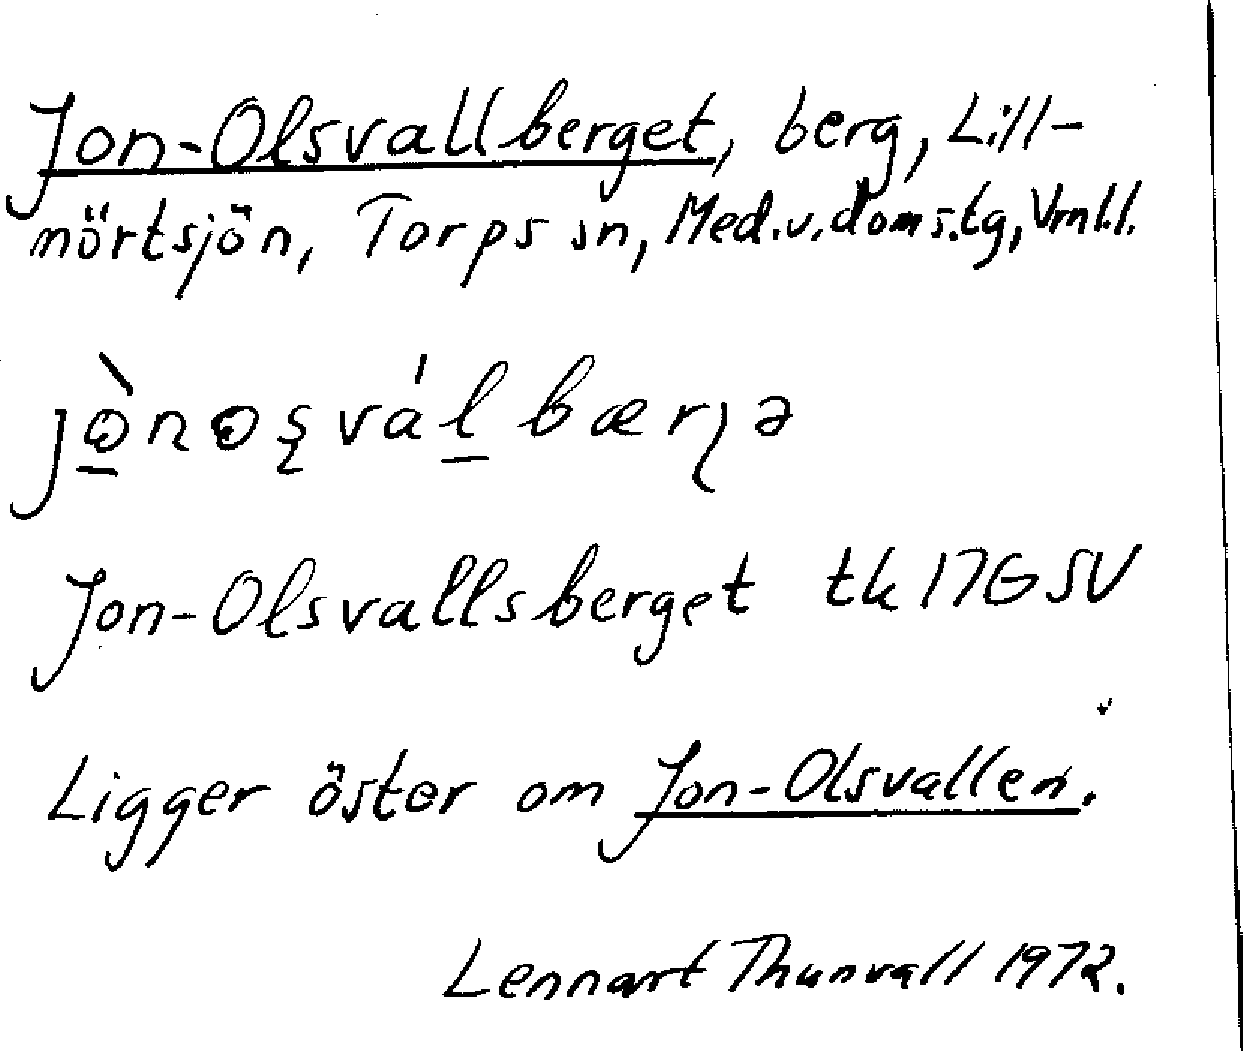 Jon-Olsvallberget, berg, Lill-
mörtsjön, Torps sn, Med.v.doms.tg, Vrnl.l.
Jon-Olsvallsberget tk 17G SV
Ligger öster om Jon-Olsvallen.
Lennart Thunvall 1972.